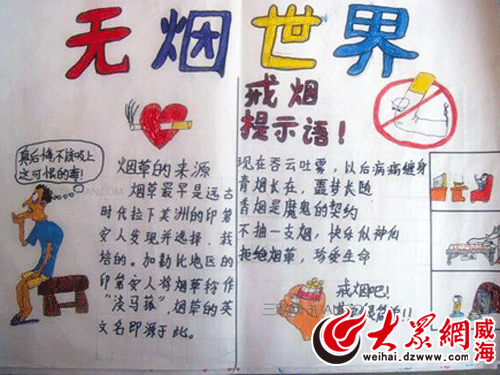 无烟世界
戒烟
提示语！
真后悔不该吸上
这可恨的毒！
烟草的来源
烟草最早是远古
时代拉丁美洲的印第
安人发现并选择、栽
培的。加勒比地区的
印第安人将烟草称作
“淡马菰”，烟草的英
文名即源于此。
现在吞云吐雾，以后病痛缠身
青烟长在，噩梦长随
香烟是魔鬼的契约
不抽一支烟，快乐似神仙
拒绝烟草，珍爱生命
戒烟吧！
大众網
威海
weihai.dzwww.com